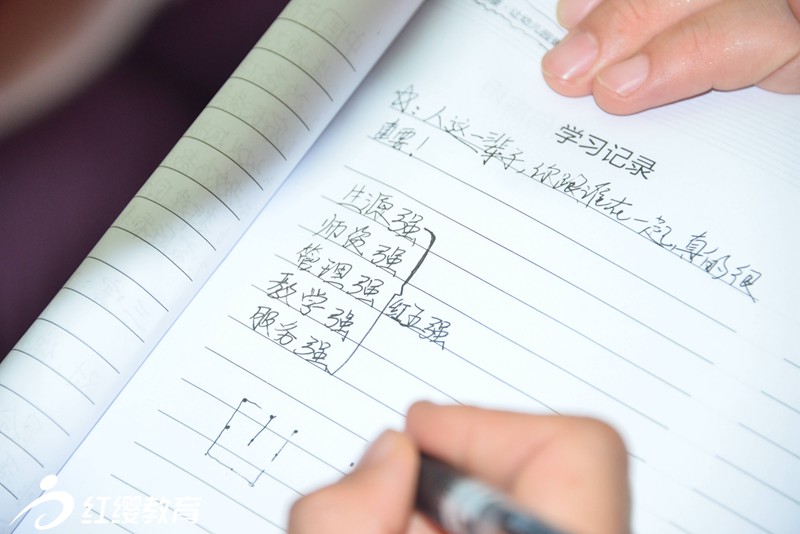 让幼儿园
学习记录
☆：人这一辈子，你跟谁在一起，真的很
重要！
生源强
师资强
管理强
教学强
服务强
红五强
红缨教育